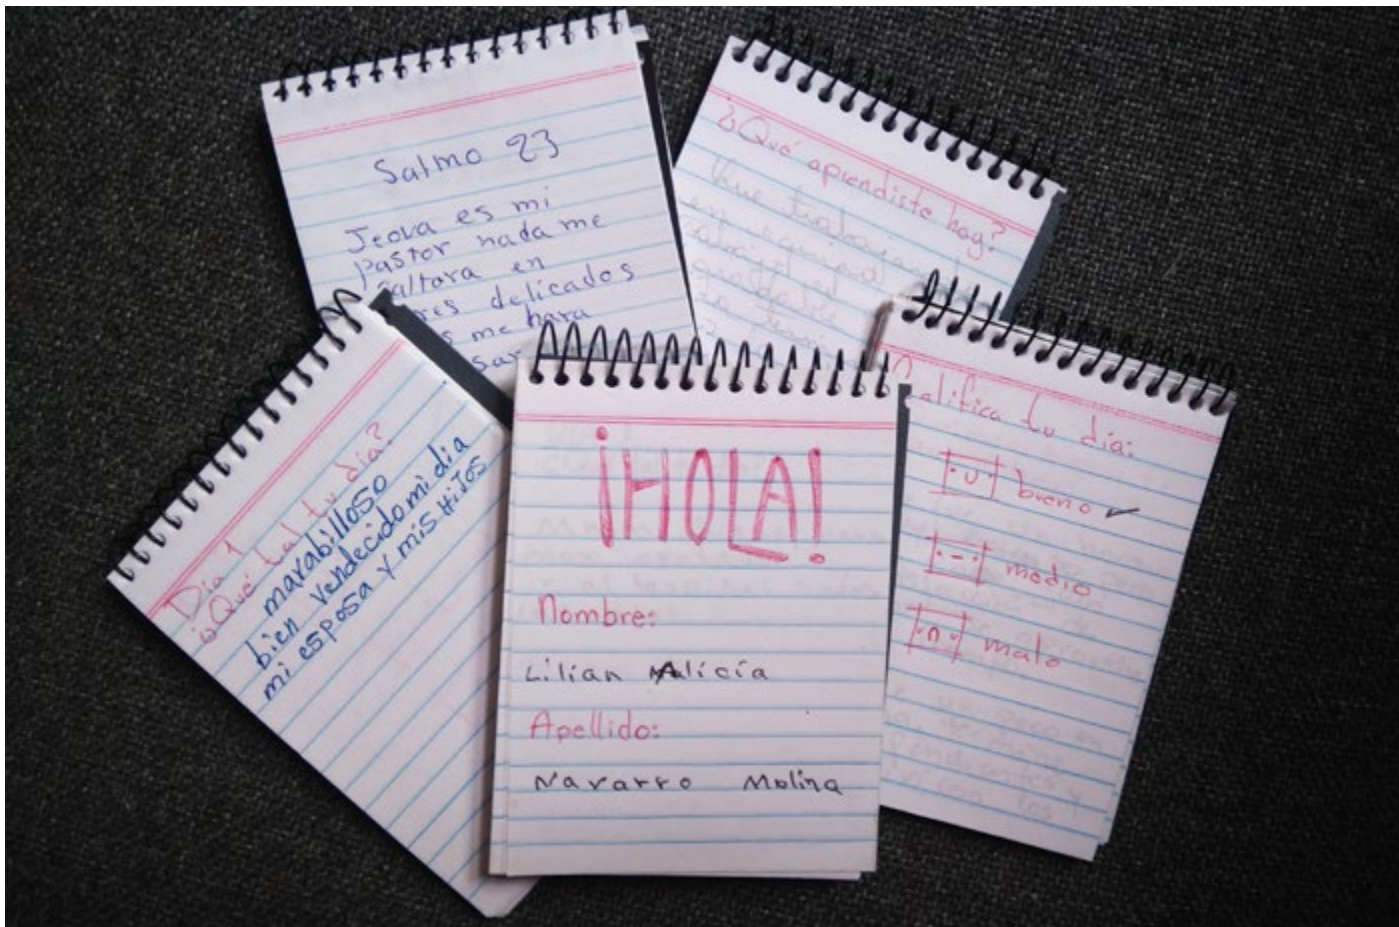 Salmo 23
Jeova es mi
pastor nada me
faltara en
delicados
me hara
¿Qué aprendiste hoy?
Que
en equipo
Día 1
¿Qué tal tu día?
marabilloso
bien vendecido mi dia
mi esposa y mis Hijos
¡HOLA!
Nombre:
Lilian Alicia
Apellido:
Navarro Molina
Califica tu día:
bueno ✓
medio
malo